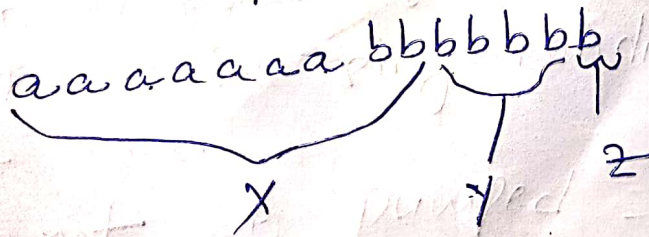 aaaaaaa bbbbbbb
X y z